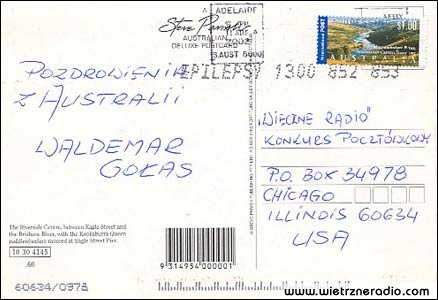 Steve Parish
AUSTRALIAN
DELUXE POSTCARD
ADELAIDE
2002
S.AUST 5000
EPILEPSY 1300 852 853
$1.00
AUSTRALIA
POZDROWIENIA
Z AUSTRALII
WALDEMAR
GOŁAS
The Riverside Centre, between Eagle Street and
the Brisbane River, with the Kookaburra Queen
paddlewheelers moored at Eagle Street Pier.
10 30 4145
.60
9 314954 000001
60634/0378
„WIECZNE RADIO”
KONKURS POCZTÓWKOWY
P.O. BOX 34978
CHICAGO
ILLINOIS 60634
USA
www.wietrzneradio.com